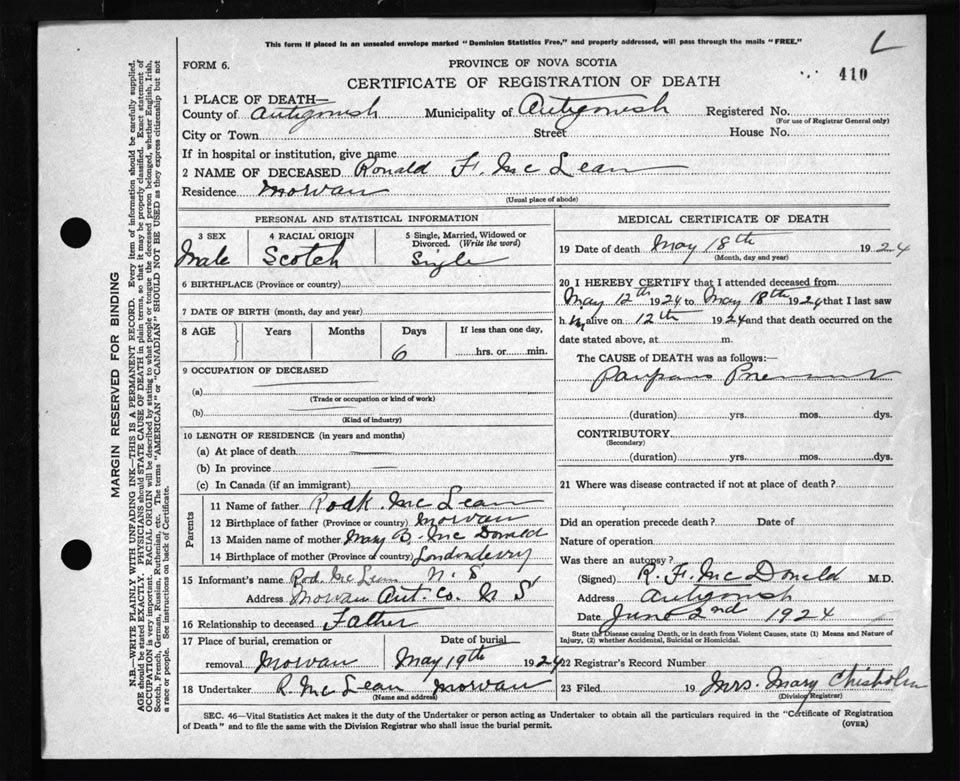 This form if placed in an unsealed envelope marked "Dominion Statistics Free," and properly addressed, will pass through the mails "FREE."
L
410
FORM 6.
PROVINCE OF NOVA SCOTIA
CERTIFICATE OF REGISTRATION OF DEATH
1 PLACE OF DEATH—
County of Antigonish Municipality of Antigonish Registered No.
(For use of Registrar General only)
City or Town Street House No.
If in hospital or institution, give name
2 NAME OF DECEASED Ronald F. McLean
Residence Morvan
(Usual place of abode)
PERSONAL AND STATISTICAL INFORMATION
3 SEX 4 RACIAL ORIGIN 5 Single, Married, Widowed or Divorced. (Write the word)
Male Scotch Single
6 BIRTHPLACE (Province or country)
7 DATE OF BIRTH (month, day and year)
8 AGE Years Months Days If less than one day,
6 hrs. or min.
9 OCCUPATION OF DECEASED
(a)
(Trade or occupation or kind of work)
(b)
(Kind of industry)
10 LENGTH OF RESIDENCE (in years and months)
(a) At place of death
(b) In province
(c) In Canada (if an immigrant)
Parents
11 Name of father Rodk. McLean
12 Birthplace of father (Province or country) Morvan
13 Maiden name of mother Mary B. McDonald
14 Birthplace of mother (Province or country) Londonderry
N. S
15 Informant's name Rod. McLean
Address Morvan Ant. Co. N S
16 Relationship to deceased Father
17 Place of burial, cremation or removal Morvan
Date of burial May 19th 1924
18 Undertaker R. McLean Morvan
(Name and address)
MEDICAL CERTIFICATE OF DEATH
19 Date of death May 18th 1924
(Month, day and year)
20 I HEREBY CERTIFY that I attended deceased from
May 12th 1924 to May 18th 1924 that I last saw
him alive on 12th 1924 and that death occurred on
date stated above, at m.
The CAUSE of DEATH was as follows:—
(duration) yrs. mos. dys.
CONTRIBUTORY
(Secondary)
(duration) yrs. mos. dys.
21 Where was disease contracted if not at place of death?
Did an operation precede death? Date of
Nature of operation
Was there an autopsy?
(Signed) R. F. McDonald M.D.
Address Antigonish
Date June 2nd 1924
State the Disease causing Death, or in death from Violent Causes, state (1) Means and Nature of
Injury, (2) whether Accidental, Suicidal or Homicidal.
22 Registrar's Record Number
23 Filed 19 Mrs. Mary Chisholm
(Division Registrar)
SEC. 46—Vital Statistics Act makes it the duty of the Undertaker or person acting as Undertaker to obtain all the particulars required in the "Certificate of Registration
of Death" and to file the same with the Division Registrar who shall issue the burial permit.
(OVER)
MARGIN RESERVED FOR BINDING
N.B.—WRITE PLAINLY WITH UNFADING INK—THIS IS A PERMANENT RECORD. Every item of information should be carefully supplied.
AGE should be stated EXACTLY. PHYSICIANS should STATE CAUSE OF DEATH in plain terms, so that it may be properly classified. Exact statement of
OCCUPATION is very important. RACIAL ORIGIN will be described by stating to what people or tongue the deceased person belonged, whether English, Irish,
Scotch, French, German, Russian, Ruthenian, etc. The terms "AMERICAN" or "CANADIAN" SHOULD NOT BE USED as they express citizenship but not
a race or people. See instructions on back of Certificate.